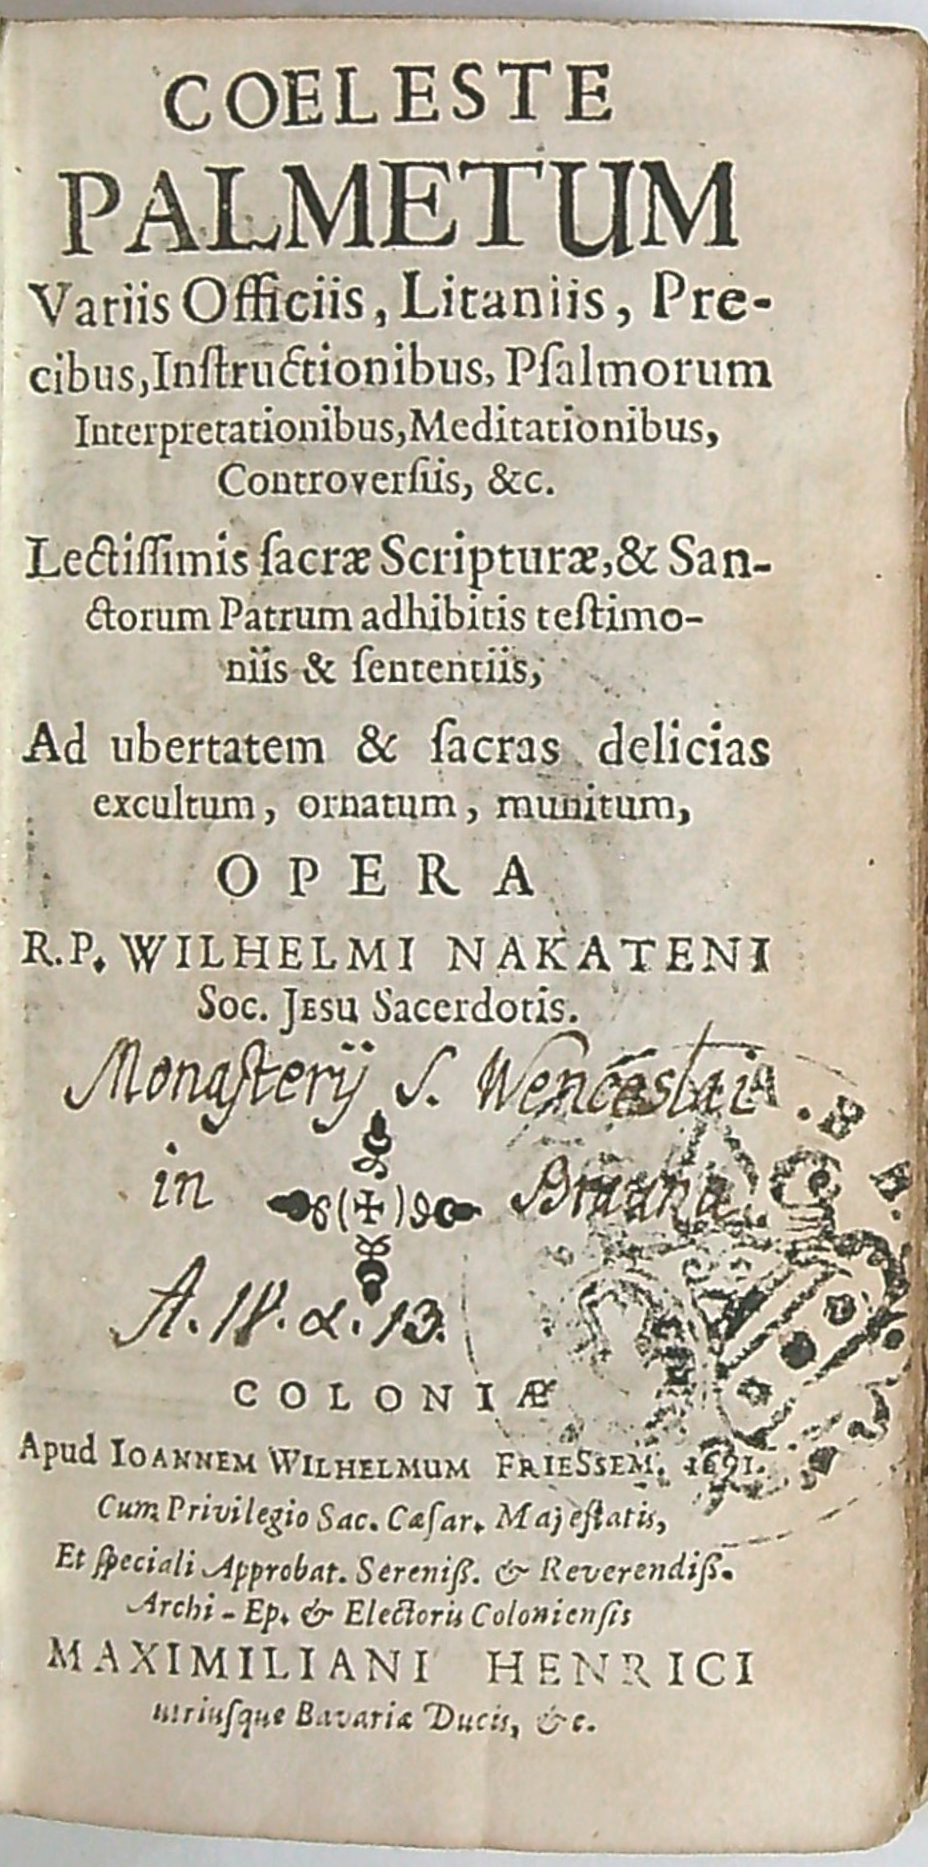 COELESTE
PALMETUM
Variis Officiis, Litaniis, Pre-
cibus, Inſtructionibus, Pſalmorum
Interpretationibus, Meditationibus,
Controverſiis, &c.
Lectiſſimis ſacræ Scripturæ, & San-
ctorum Patrum adhibitis teſtimo-
niis & ſententiis,
Ad ubertatem & ſacras delicias
excultum, ornatum, munitum,
OPERA
R.P. WILHELMI NAKATENI
Soc. JESU Sacerdotis.
Monaſterij S. Wenceslai
in Brauna
A. 18. α. 13.
COLONIÆ
Apud IOANNEM WILHELMUM FRIESSEM. 1691.
Cum Privilegio Sac. Cæſar. Majeſtatis,
Et ſpeciali Approbat. Sereniß. & Reverendiß.
Archi-Ep. & Electoris Colonienſis
MAXIMILIANI HENRICI
utriuſque Bavariæ Ducis, &c.